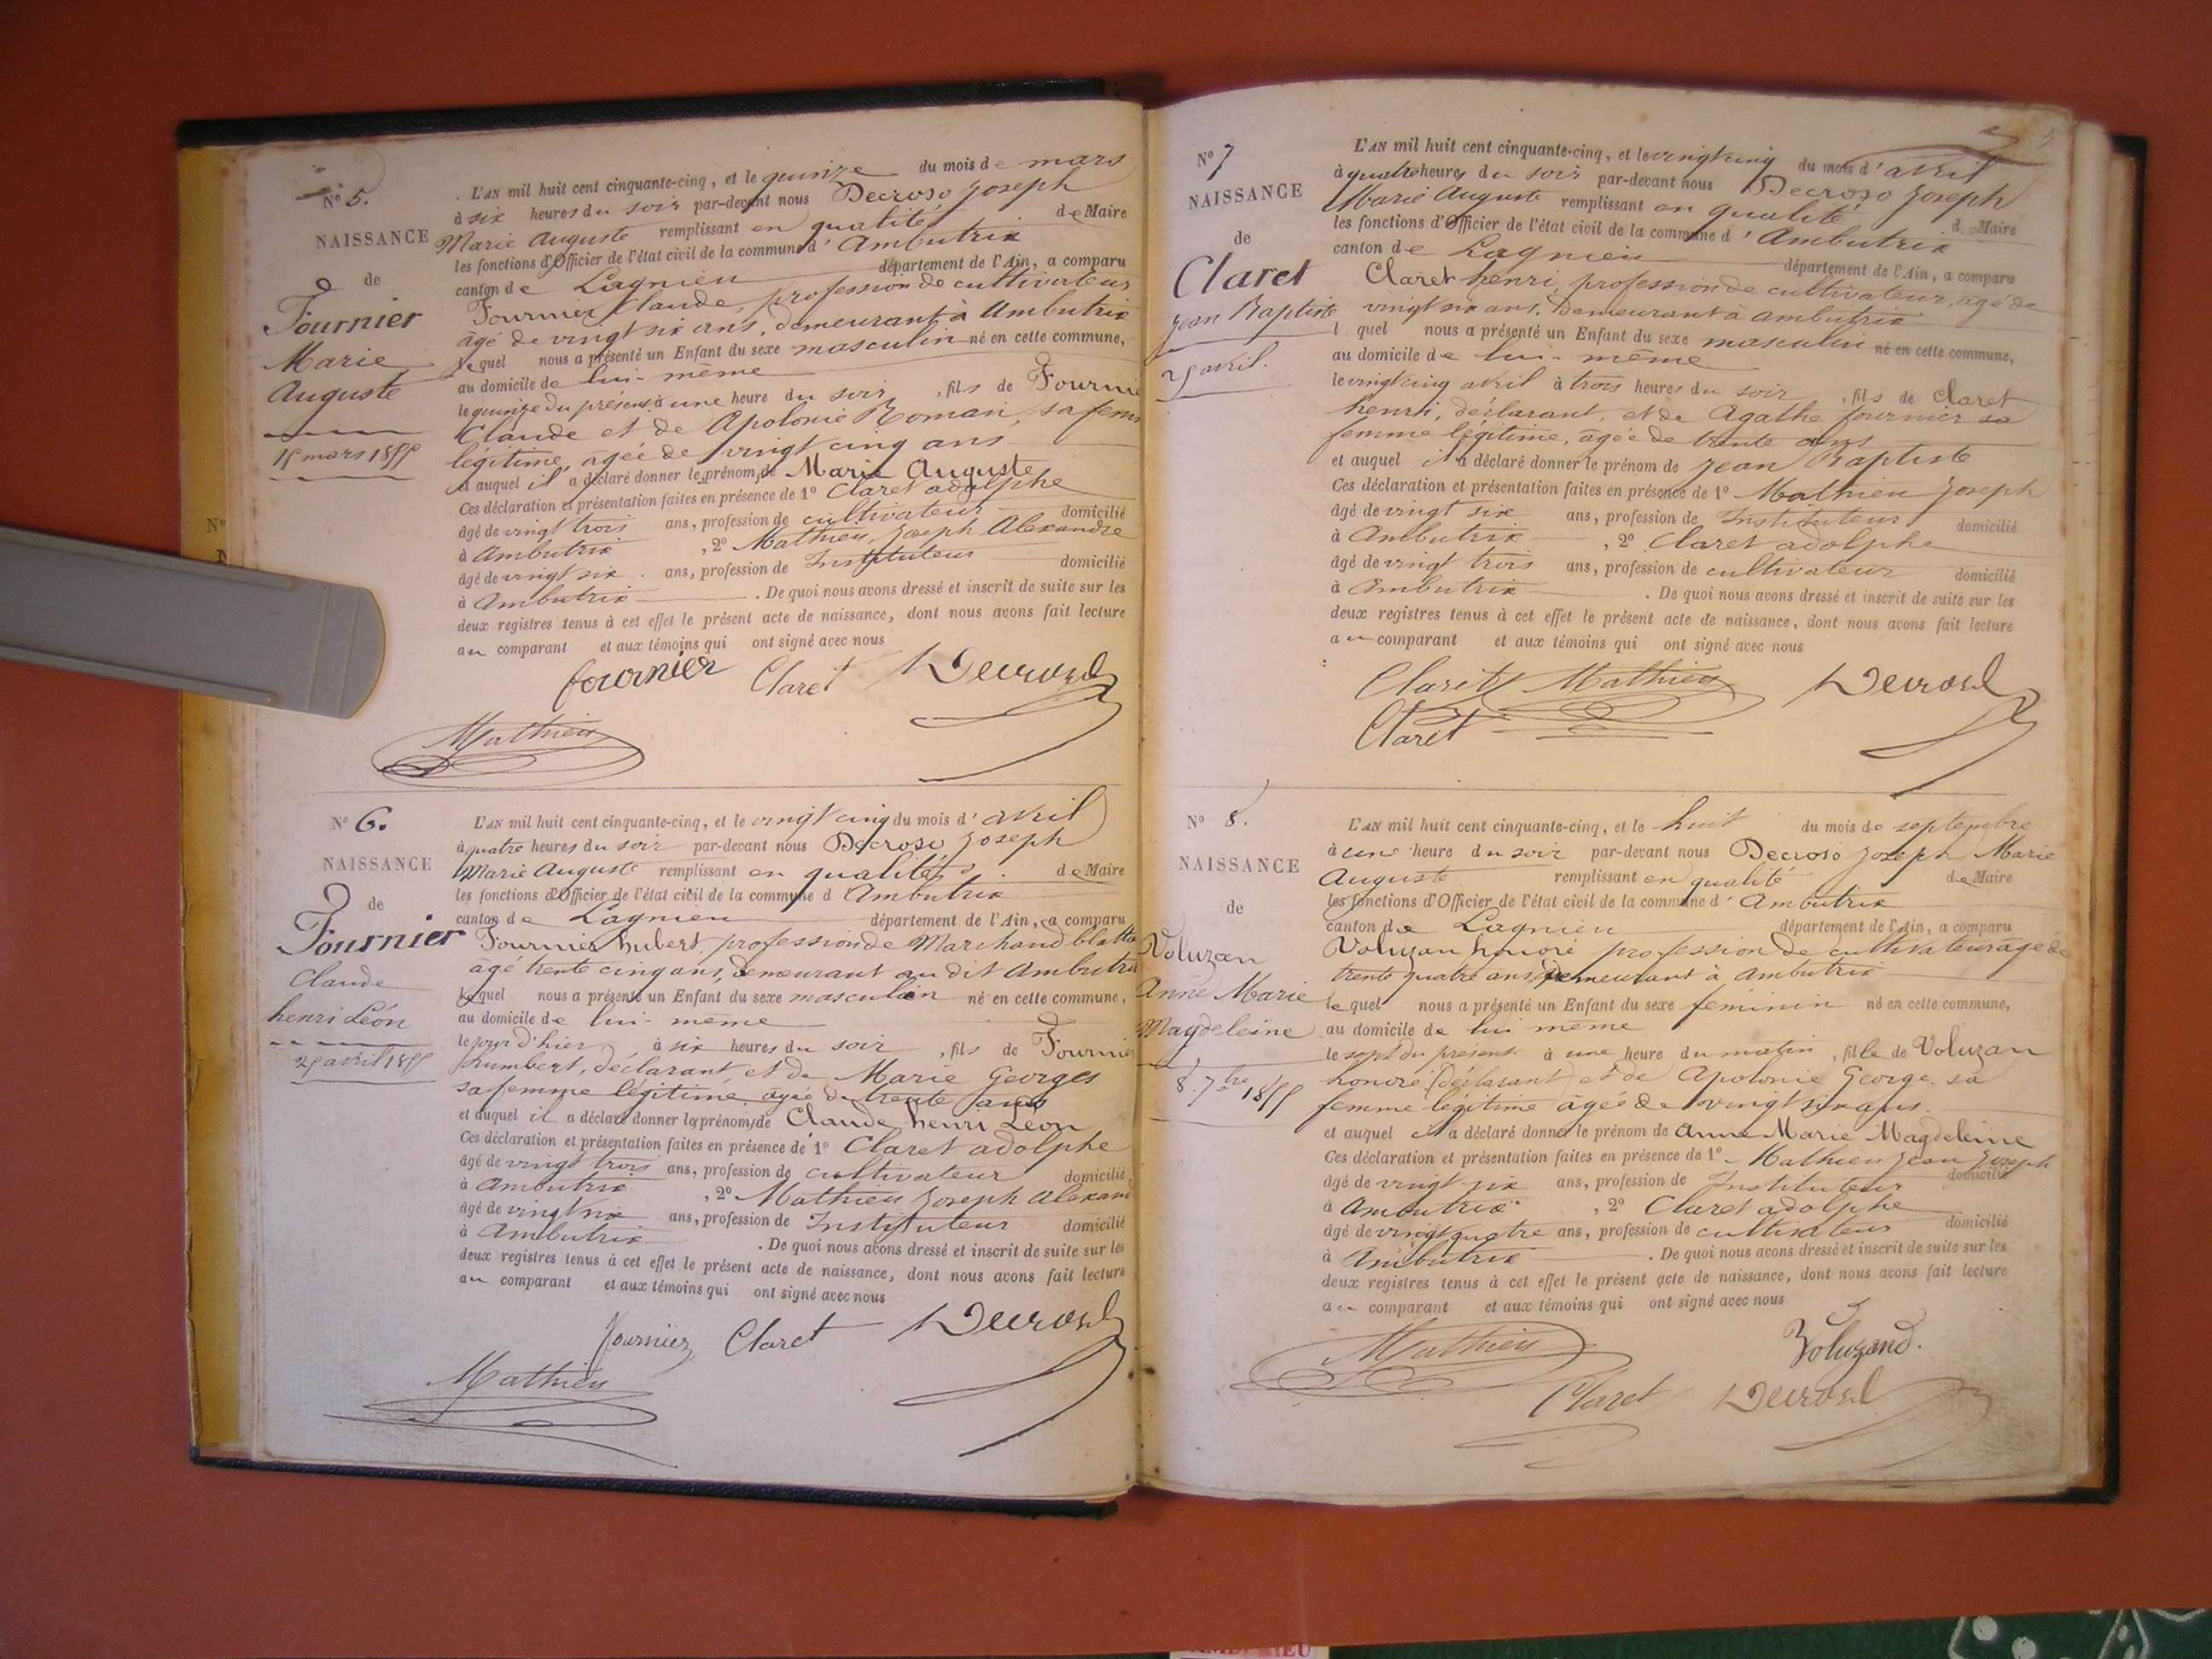 N° 5.
NAISSANCE
de
Fournier
Marie
Auguste
15 mars 1855
L'AN mil huit cent cinquante-cinq, et le quinze du mois de mars
à six heures du soir par-devant nous Decroso Joseph
Marie Auguste remplissant en qualité de Maire
les fonctions d'Officier de l'état civil de la commune d'Ambutrix
canton de Lagnieu département de l'Ain, a comparu
Fournier Claude, profession de cultivateur
âgé de vingt six ans, demeurant à Ambutrix
lequel nous a présenté un Enfant du sexe masculin né en cette commune,
au domicile de lui-même
le quinze du présent à une heure du soir, fils de Fournier
Claude et de Apolonie Roman, sa femme
légitime, agée de vingt cinq ans
et auquel il a déclaré donner le prénom de Marie Auguste
Ces déclaration et présentation faites en présence de 1° Claret adolphe
âgé de vingt trois ans, profession de cultivateur domicilié
à Ambutrix, 2° Mathieu, Joseph Alexandre
âgé de vingt six ans, profession de Instituteur domicilié
à Ambutrix. De quoi nous avons dressé et inscrit de suite sur les
deux registres tenus à cet effet le présent acte de naissance, dont nous avons fait lecture
au comparant et aux témoins qui ont signé avec nous
fournier Claret Decroso
Mathieu
N° 6.
NAISSANCE
de
Fournier
Claude
henri Léon
25 avril 1855
L'AN mil huit cent cinquante-cinq, et le vingt cinq du mois d'avril
à quatre heures du soir par-devant nous Decroso Joseph
Marie Auguste remplissant en qualité de Maire
les fonctions d'Officier de l'état civil de la commune d'Ambutrix
canton de Lagnieu département de l'Ain, a comparu
Fournier hubert, profession de Marchand
âgé trente cinq ans, demeurant au dit Ambutrix
lequel nous a présenté un Enfant du sexe masculin né en cette commune,
au domicile de lui-même
le jour d'hier, à six heures du soir, fils de Fournier
humbert, déclarant, et de Marie Georges
sa femme légitime agée de trente ans
et auquel il a déclaré donner les prénoms de Claude henri Léon
Ces déclaration et présentation faites en présence de 1° Claret adolphe
âgé de vingt trois ans, profession de cultivateur domicilié
à Ambutrix, 2° Mathieu Joseph Alexand
âgé de vingt six ans, profession de Instituteur domicilié
à Ambutrix. De quoi nous avons dressé et inscrit de suite sur les
deux registres tenus à cet effet le présent acte de naissance, dont nous avons fait lecture
au comparant et aux témoins qui ont signé avec nous
fournier Claret Decroso
Mathieu
3
N° 7
NAISSANCE
de
Claret
Jean Baptiste
25 avril.
L'AN mil huit cent cinquante-cinq, et le vingt cinq du mois d'avril
à quatre heures du soir par-devant nous Decroso Joseph
Marie Auguste remplissant en qualité de Maire
les fonctions d'Officier de l'état civil de la commune d'Ambutrix
canton de Lagnieu département de l'Ain, a comparu
Claret henri, profession de cultivateur, agé de
vingt six ans, demeurant à ambutrix
l quel nous a présenté un Enfant du sexe masculin né en cette commune,
au domicile de lui-même
le vingt cinq avril à trois heures du soir, fils de Claret
henri, déclarant, et de Agathe fournier sa
femme légitime, agée de trente ans
et auquel il a déclaré donner le prénom de Jean Baptiste
Ces déclaration et présentation faites en présence de 1° Mathieu Joseph
âgé de vingt six ans, profession de Instituteur domicilié
à Ambutrix, 2° Claret adolphe
âgé de vingt trois ans, profession de cultivateur domicilié
à Ambutrix. De quoi nous avons dressé et inscrit de suite sur les
deux registres tenus à cet effet le présent acte de naissance, dont nous avons fait lecture
au comparant et aux témoins qui ont signé avec nous
Claret Mathieu Decroso
Claret
N° 8.
NAISSANCE
de
Voluzan
Anne Marie
Magdeleine
8. 7bre 1855
L'AN mil huit cent cinquante-cinq, et le huit du mois de septembre
à une heure du soir par-devant nous Decroso Joseph Marie
Auguste remplissant en qualité de Maire
les fonctions d'Officier de l'état civil de la commune d'Ambutrix
canton de Lagnieu département de l'Ain, a comparu
Voluzan honoré profession de cultivateur agé de
trente quatre ans, demeurant à ambutrix
le quel nous a présenté un Enfant du sexe féminin né en cette commune,
au domicile de lui même
le sept du présent à une heure du matin, fille de Voluzan
honoré (déclarant) et de Apolonie George sa
femme légitime agée de vingt six ans.
et auquel il a déclaré donner le prénom de Anne Marie Magdeleine
Ces déclaration et présentation faites en présence de 1° Mathieu Jean Joseph
âgé de vingt six ans, profession de Instituteur domicilié
à Ambutrix, 2° Claret adolphe
âgé de vingt quatre ans, profession de cultivateur domicilié
à Ambutrix. De quoi nous avons dressé et inscrit de suite sur les
deux registres tenus à cet effet le présent acte de naissance, dont nous avons fait lecture
au comparant et aux témoins qui ont signé avec nous
Mathieu Voluzand.
Claret Decroso